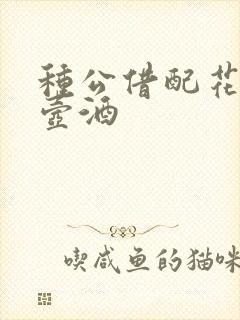 種公借配花
壺酒
喫咸鱼的猫咪